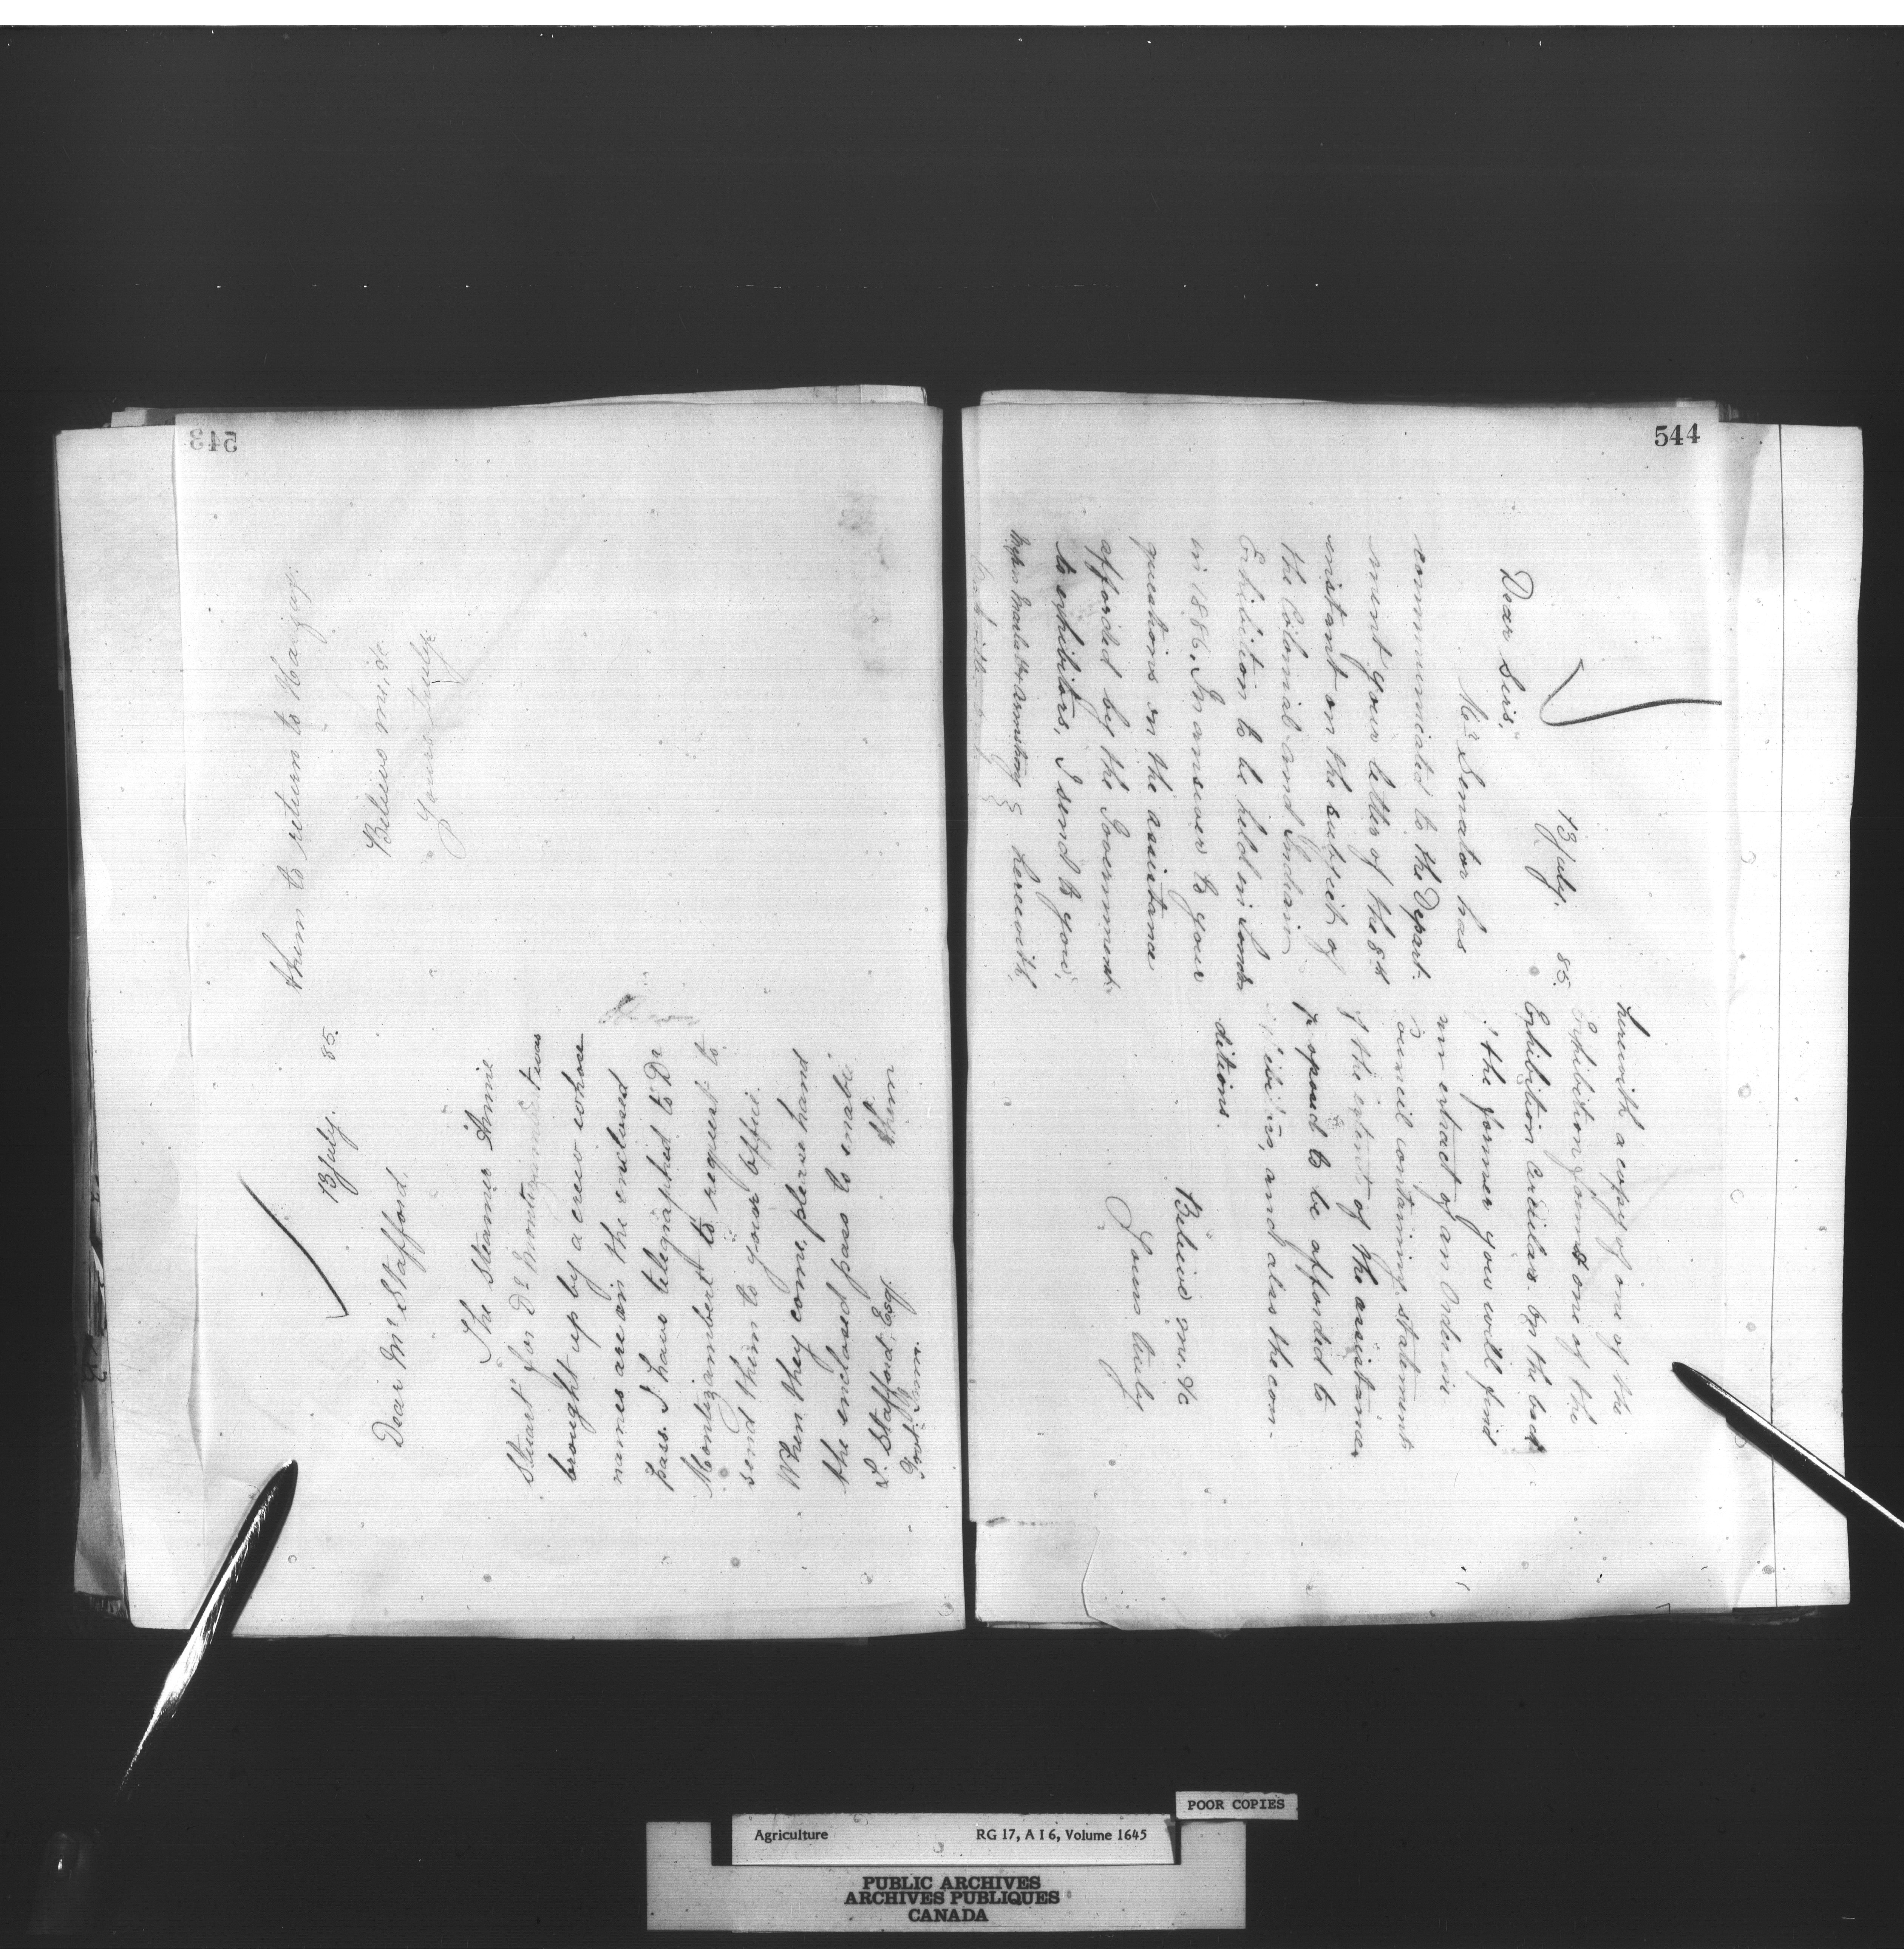 543
13 July. 85.
Dear Mr Stafford,
The Steamer "Annie
Stuart" for Dr Montizambert was
brought up by a crew whose
names are on the enclosed
pass. I have telegraphed to Dr
Montizambert to request to
send them to your office.
When they come, please hand
the enclosed pass to enable
them
L. Stafford, Esq.
them to return to
Believe me, &c
Yours truly
544
13 July. 85.
Dear Sirs,
Mr Senator has
communicated to the Depart-
ment your letter of the 8th
instant on the subject of
the Colonial and Indian
Exhibition to be held in London
in 1886. In answer to your
questions on the assistance
afforded by the Government
to exhibitors, I send to you,
herewith,
Armstrong
herewith a copy of one of the
Exhibition forms & one of the
Exhibition circular. On the back
of the former you will find
an extract of an Order in
Council containing statement
of the extent of the assistance
proposed to be afforded to
and also the con-
ditions.
Believe me, &c
Yours truly
POOR COPIES
Agriculture RG 17, A I 6, Volume 1645
PUBLIC ARCHIVES
ARCHIVES PUBLIQUES
CANADA